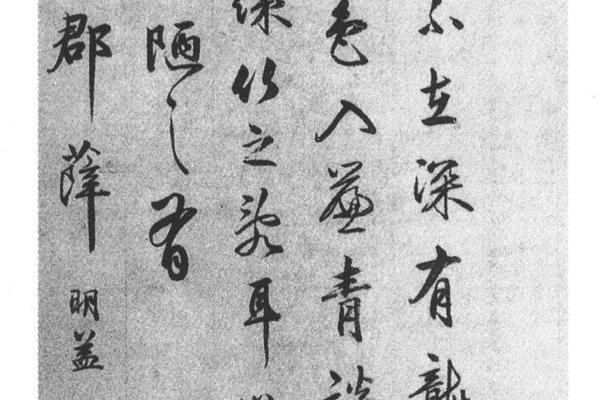 不在深有龍
色入簾青談
絲竹之亂耳
陋之有
郡薛明益